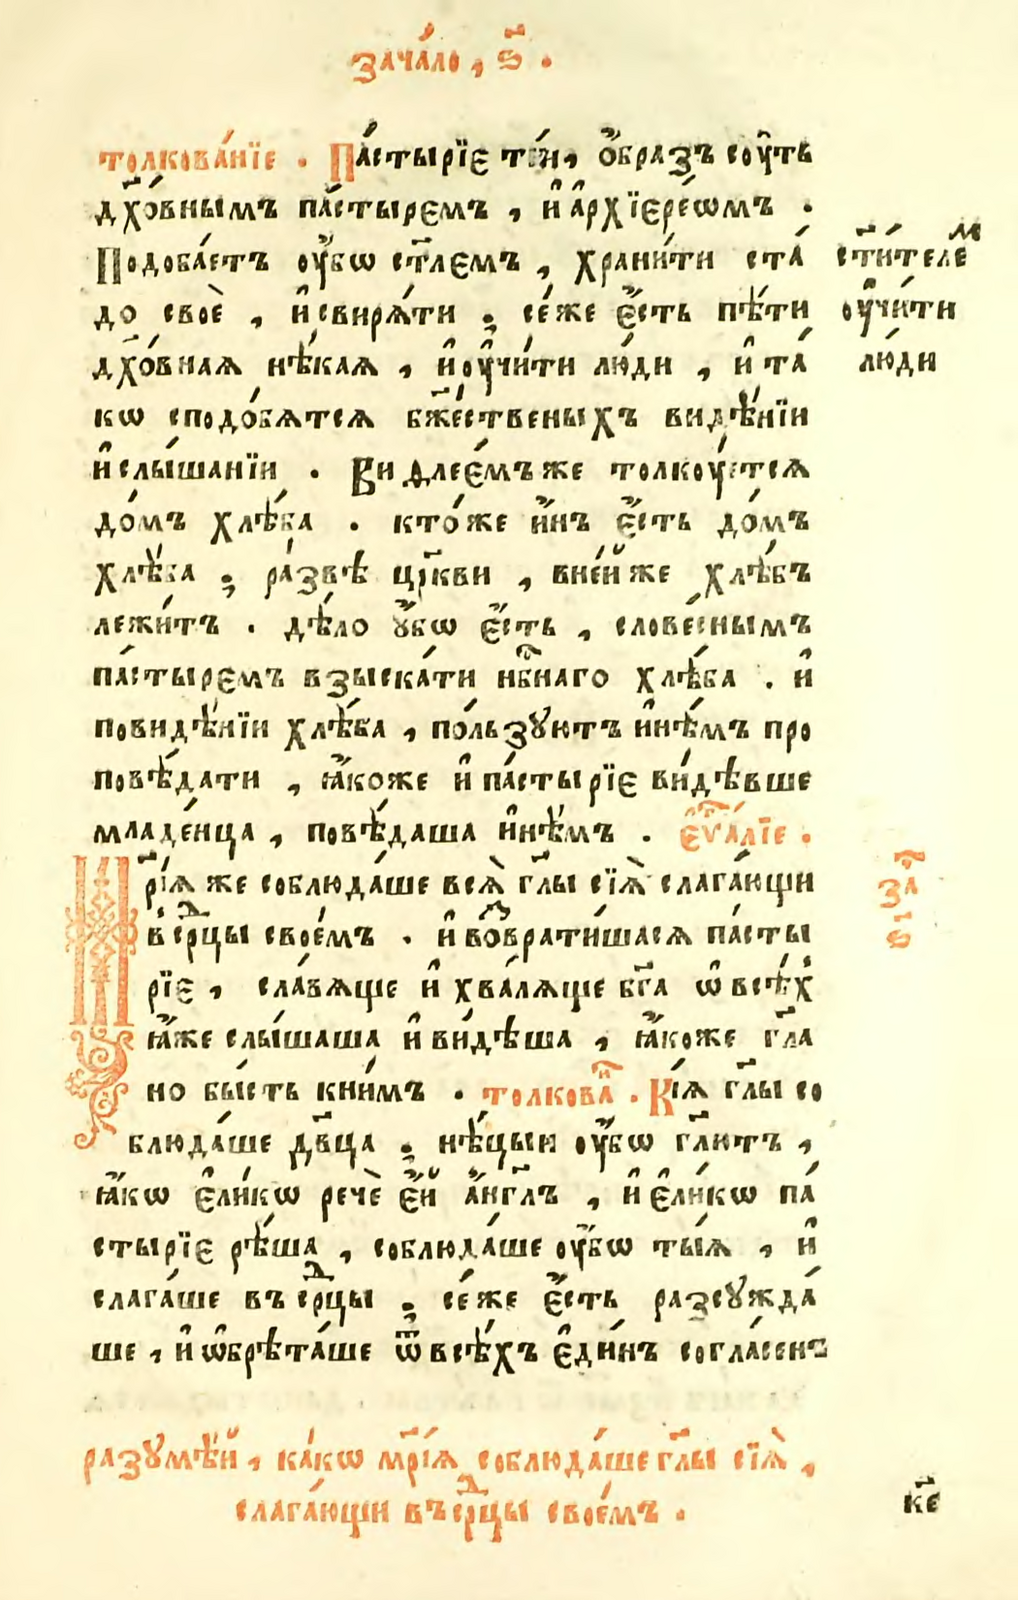 зача́ло, ѕ҃.
толкова́нїе. Па́стырїе ті́и, ѻ҆́бразъ сꙋ́ть
дх҃о́внымъ па́стырємъ, и҆ а҆рхїєре́ѡмъ.
Подоба́етъ ᲂу҆́бѡ ст҃лємъ, храни́ти ста́
до своѐ, и҆ свирѧ́ти; се́же є҆́сть пѣ́ти
дх҃о́внаѧ нѣ́каѧ, и҆ ᲂу҆чи́ти лю́ди, и҆ та́
кѡ сподо́бѧтсѧ бж҃е́ственыхъ видѣ́нїи
и҆ слы́шанїи. Виѳлее́мъже толкꙋ́етсѧ
до́мъ хлѣ́ба. кто́же и҆́нъ є҆́сть до́мъ
хлѣ́ба; ра́звѣ цр҃кви, вне́йже хлѣ́бъ
лежи́тъ. дѣ́ло ᲂу҆́бѡ є҆́сть, слове́снымъ
па́стырємъ взыска́ти нб҃наго хлѣ́ба. и҆
повидѣ́нїи хлѣ́ба, по́льзꙋютъ и҆нѣ́мъ про
повѣ́дати, ꙗ҆́коже и҆ па́стырїє ви́дѣвше
младе́нца, повѣ́даша и҆нѣ́мъ. є҆ѵⷢ҇а́лїе.
Мр҃і́ѧ же соблюда́ше всѧ̀ гл҃ы сїѧ̀ слага́ющи
в срⷣцы свое́мъ. и҆ воⷡ҇врати́шасѧ па́сты
рїє, сла́вѧще и҆ хва́лѧще бг҃а ѡ҆ всѣ́хъ
ꙗ҆́же слы́шаша и҆ ви́дѣша, ꙗ҆́коже гл҃а
но бы́сть кни́мъ. толковаⷩ҇. Кі́ѧ гл҃ы со
блюда́ше дв҃ца; нѣ́цыи ᲂу҆́бѡ гл҃ютъ,
ꙗ҆́кѡ є҆ли́кѡ речѐ є҆́й а҆́нгл҃ъ, и҆ є҆ли́кѡ па́
стырїє рѣ́ша, соблюда́ше ᲂу҆́бѡ ты́ѧ, и҆
слага́ше въ срⷣцы; се́же є҆́сть разсꙋжда́
ше, и҆ ѡ҆брѣта́ше ѿ всѣ́хъ є҆ди́нъ согла́сенъ
ст҃и́телеⷨ
ᲂу҆чи́ти
лю́ди
заⷱ҇
ѕ҃
разꙋмѣ́й, ка́кѡ мр҃і́ѧ соблюда́ше гл҃ы сїѧ̀,
слага́ющи въ срⷣцы свое́мъ.
к҃є